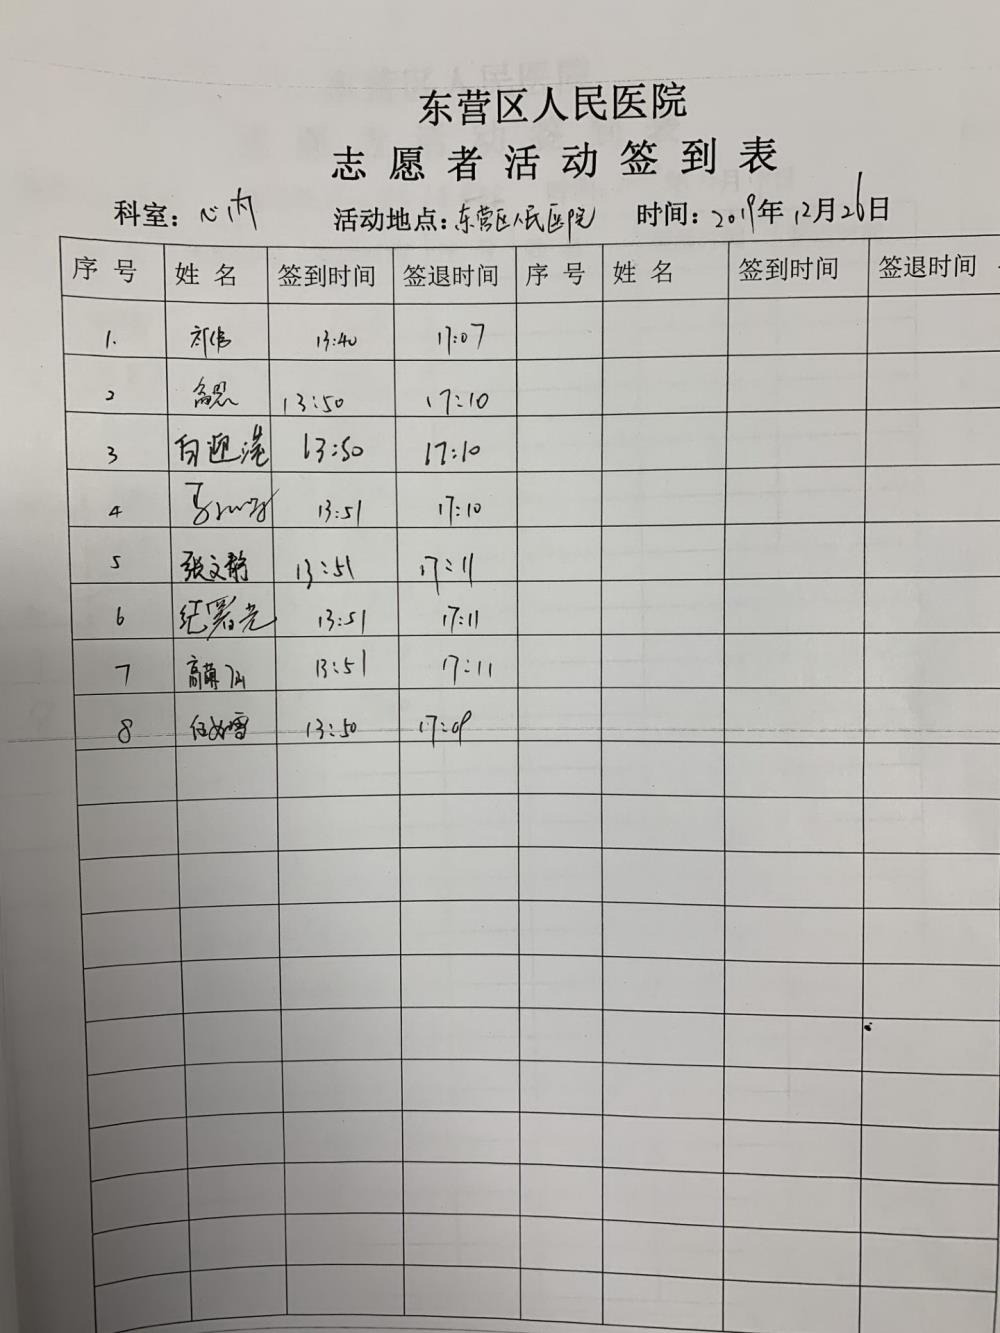 东营区人民医院
志愿者活动签到表
科室：心内 活动地点：东营区人民医院 时间：2019年12月26日
序号 姓名 签到时间 签退时间 序号 姓名 签到时间 签退时间
1. 13:40 17:07
2 13:50 17:10
3 白迎港 13:50 17:10
4 13:51 17:10
5 张文静 13:51 17:11
6 纪曙光 13:51 17:11
7 13:51 17:11
8 13:50 17:09